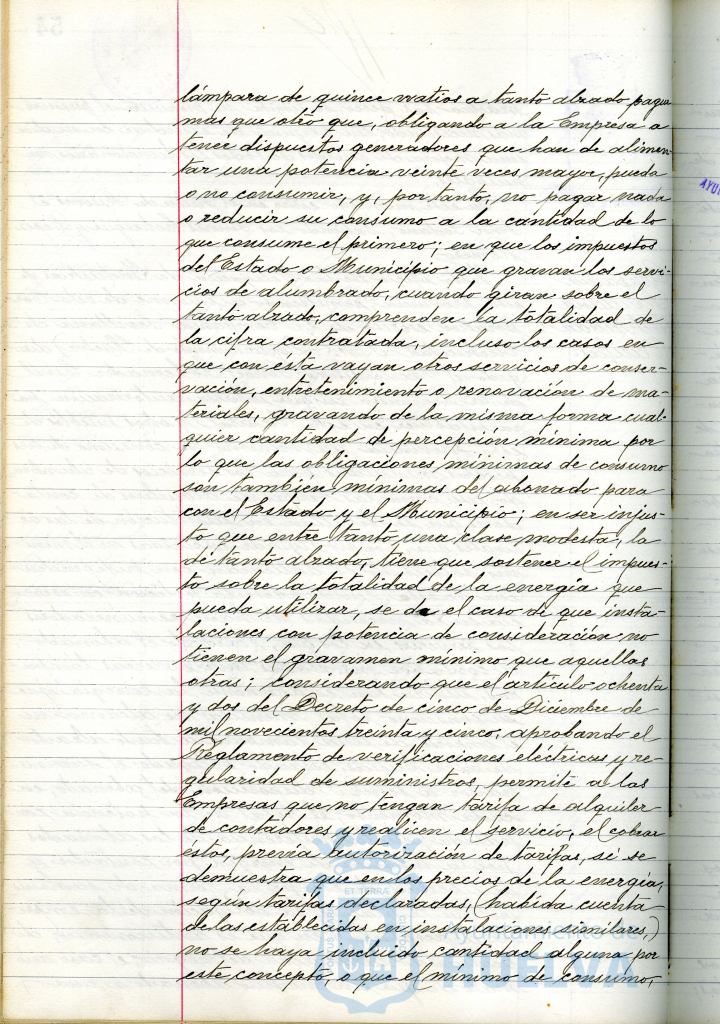 lámpara de quince watios a tanto alzado pague
más que otro que, obligando a la Empresa a
tener dispuestos generadores que han de alimen-
tar una potencia veinte veces mayor, pueda
o no consumir, y, por tanto, no pagar nada
o reducir su consumo a la cantidad de lo
que consume el primero; en que los impuestos
del Estado o Municipio que gravan los servi-
cios de alumbrado, cuando giran sobre el
tanto alzado, comprenden la totalidad de
la cifra contratada, incluso los casos en
que con ésta vayan otros servicios de conser-
vación, entretenimiento o renovación de ma-
teriales, gravando de la misma forma cual-
quier cantidad de percepción mínima por
lo que las obligaciones mínimas de consumo
son también mínimas del abonado para
con el Estado y el Municipio; en ser injus-
to que entre tanto una clase modesta, la
de tanto alzado, tiene que sostener el impues-
to sobre la totalidad de la energía que
pueda utilizar, se da el caso de que insta-
laciones con potencia de consideración no
tienen el gravamen mínimo que aquellas
otras; considerando que el artículo ochenta
y dos del Decreto de cinco de Diciembre de
mil novecientos treinta y cinco, aprobando el
Reglamento de verificaciones eléctricas y re-
gularidad de suministros, permite a las
Empresas que no tengan tarifa de alquiler
de contadores y realicen el servicio, el cobrar
éstos, previa autorización de tarifas, si se
demuestra que en los precios de la energía,
según tarifas declaradas, (habida cuenta
de las establecidas en instalaciones similares,)
no se haya incluido cantidad alguna por
este concepto, o que el mínimo de consumo,
Ayuntamiento de
HUELVA